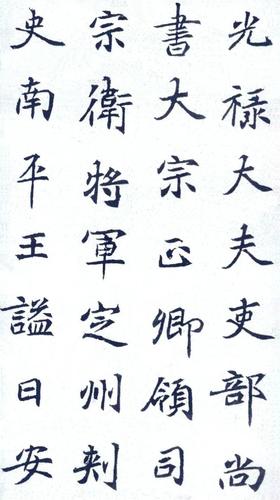 光祿大夫吏部尚
書大宗正卿領司
宗衛將軍定州刺
史南平王謚曰安